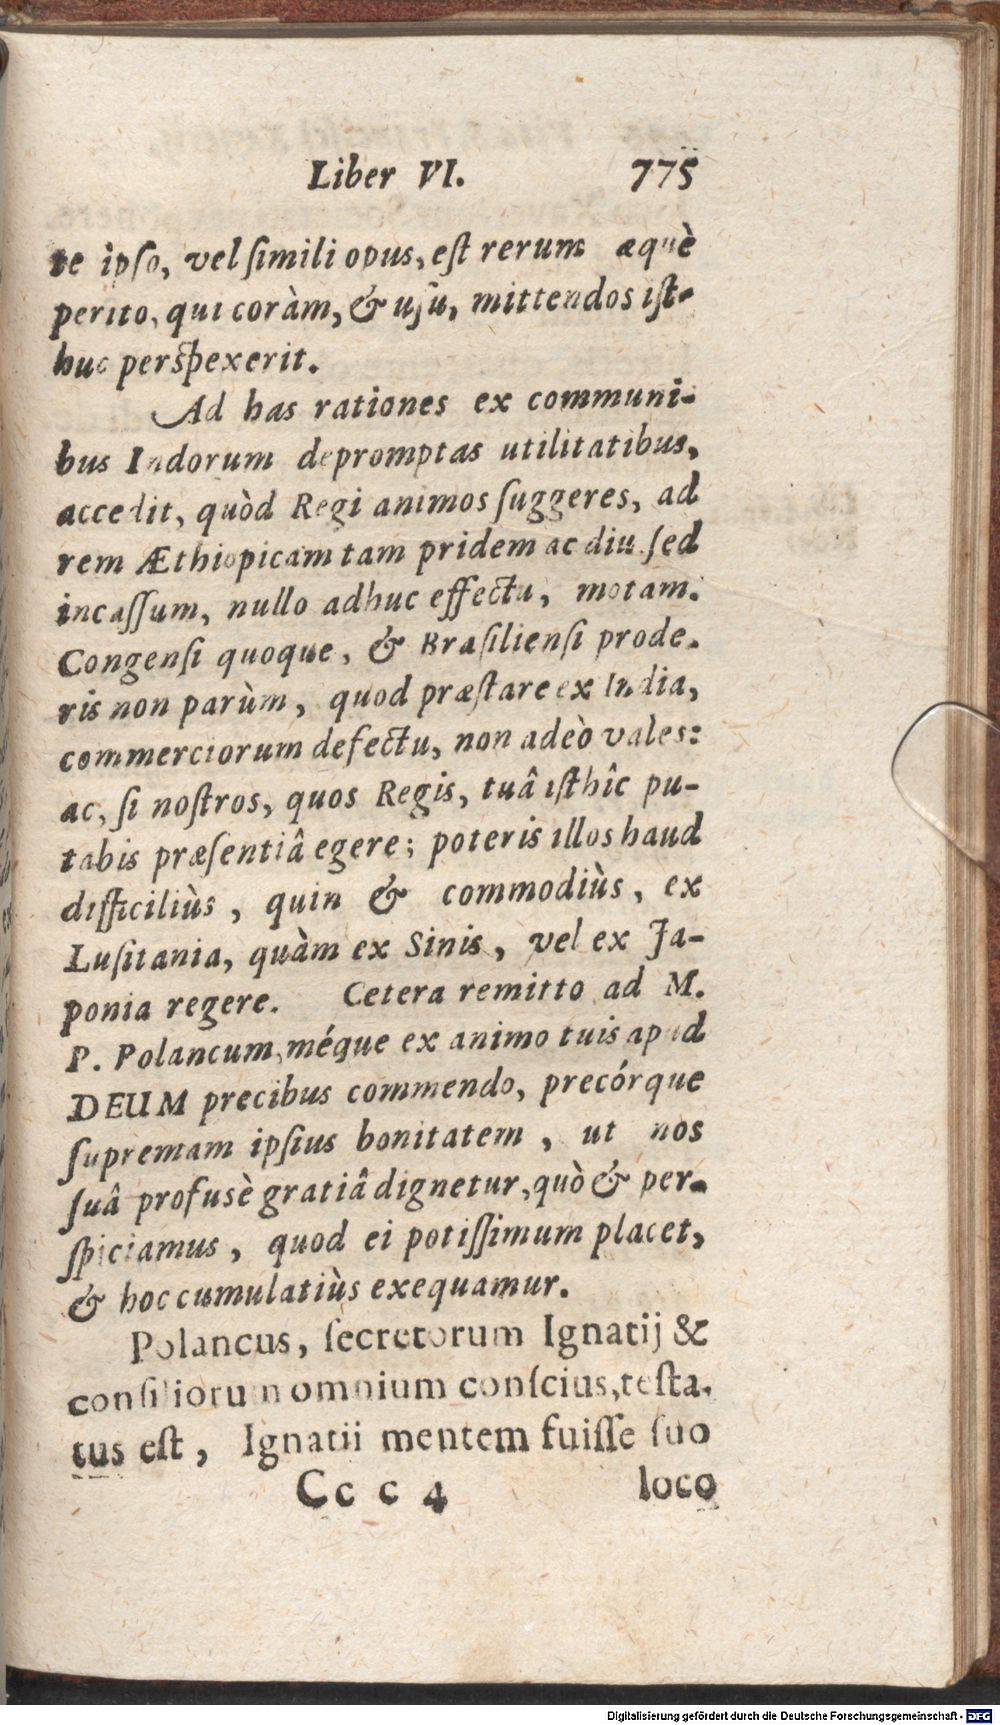 Liber VI. 775
te ipso, vel ſimili opus, eſt rerum æquè
perito, qui coràm, & uſu, mittendos iſt-
huc perſpexerit.
Ad has rationes ex communi-
bus Indorum depromptas utilitatibus,
accedit, quòd Regi animos ſuggeres, ad
rem Æthiopicam tam pridem ac diu ſed
incaſſum, nullo adhuc effectu, motam.
Congenſi quoque, & Braſilienſi prode-
ris non parùm, quod præſtare ex India,
commerciorum defectu, non adeò vales:
ac, ſi noſtros, quos Regis, tuâ iſthîc pu-
tabis præſentiâ egere; poteris illos haud
difficiliùs, quin & commodiùs, ex
Luſitania, quàm ex Sinis, vel ex Ja-
ponia regere. Cetera remitto ad M.
P. Polancum, méque ex animo tuis apud
DEUM precibus commendo, precórque
ſupremam ipſius bonitatem, ut nos
ſuâ profusè gratiâ dignetur, quò & per-
ſpiciamus, quod ei potiſſimum placet,
& hoc cumulatiùs exequamur.
Polancus, ſecretorum Ignatij &
conſiliorum omnium conſcius, teſta-
tus eſt, Ignatii mentem fuiſſe ſuo
Cc c 4 loco
Digitalisierung gefördert durch die Deutsche Forschungsgemeinschaft - DFG